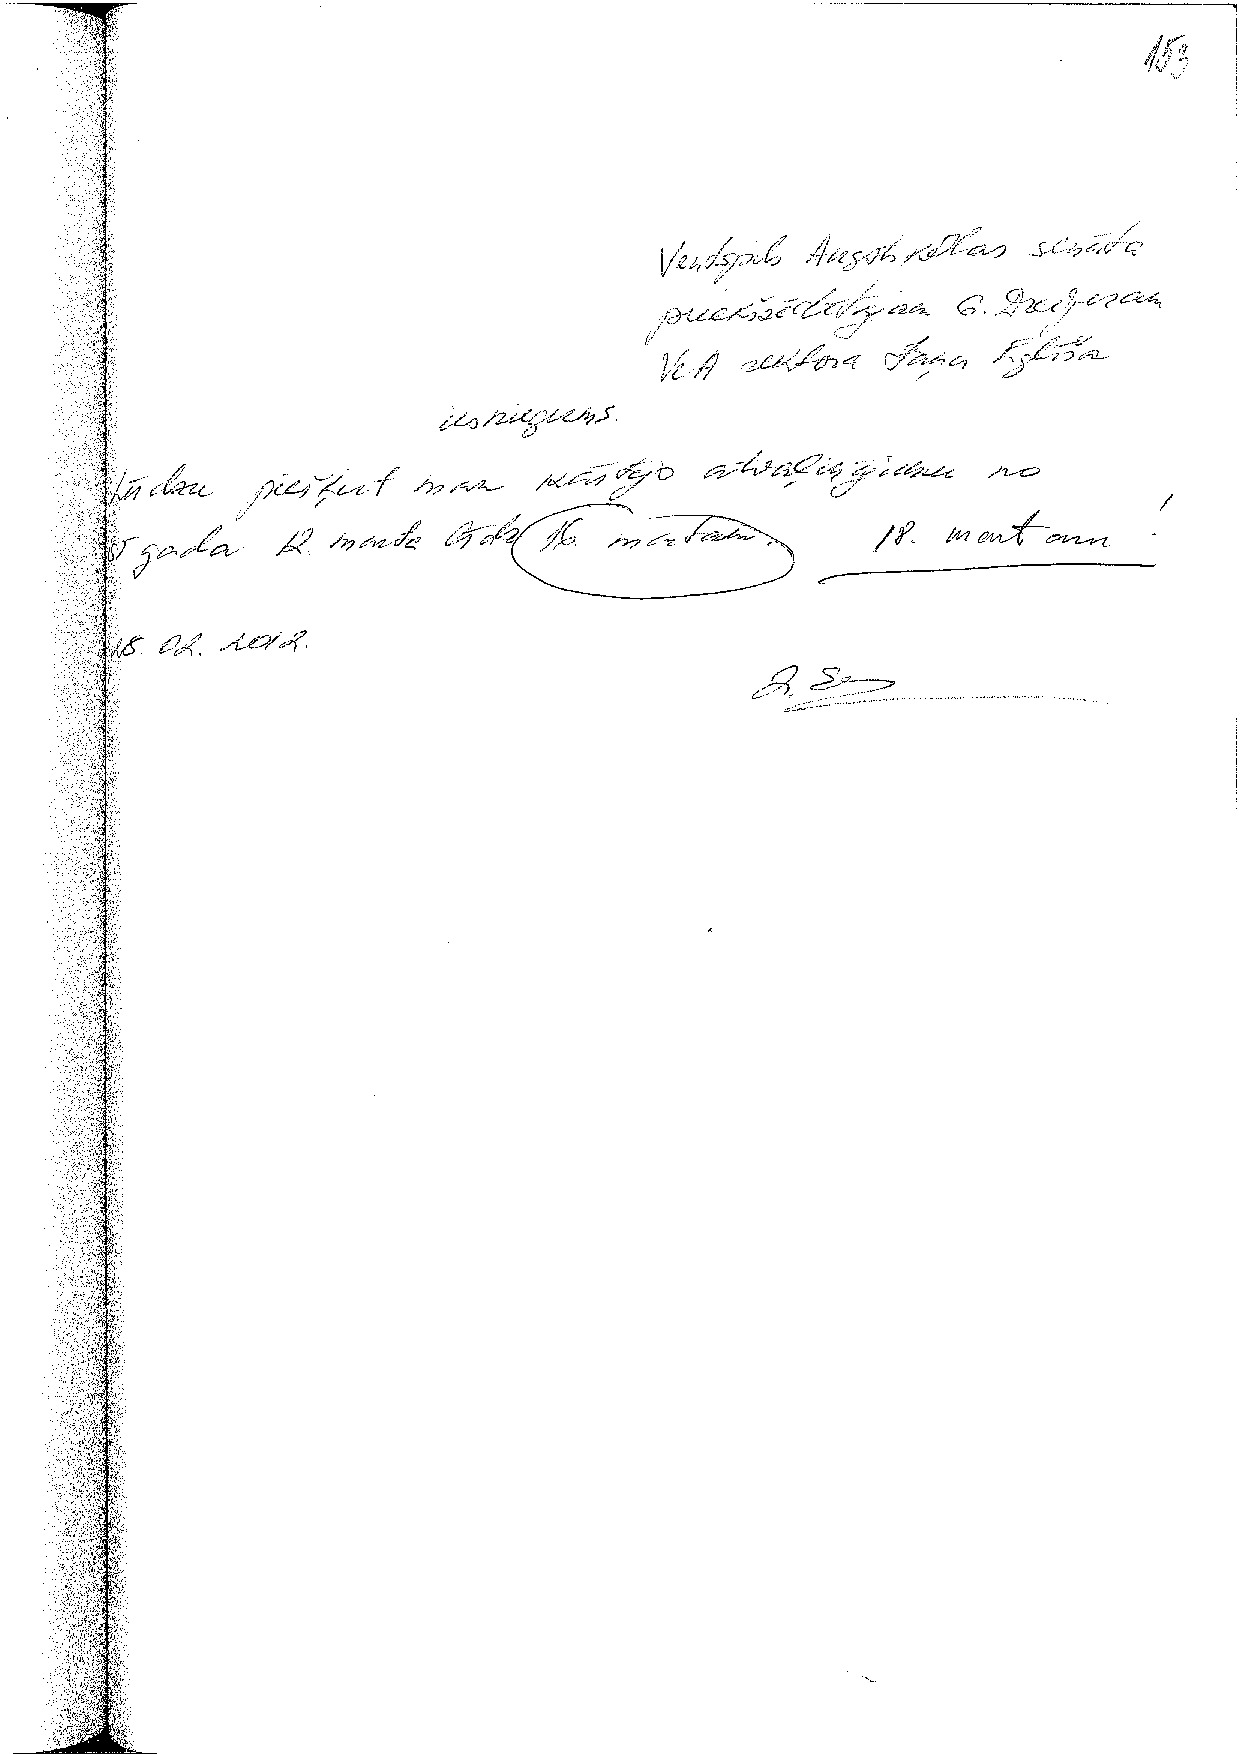 153
Ventspils Augstskolas senāta
priekšsēdētājam G. Dreijeram
VeA rektora Jāņa Eglīša
iesniegums.
Lūdzu piešķirt man kārtējo atvaļinājumu no
gada 12. marta līdz 16. martam. 18. martam!
28. 02. 2012.